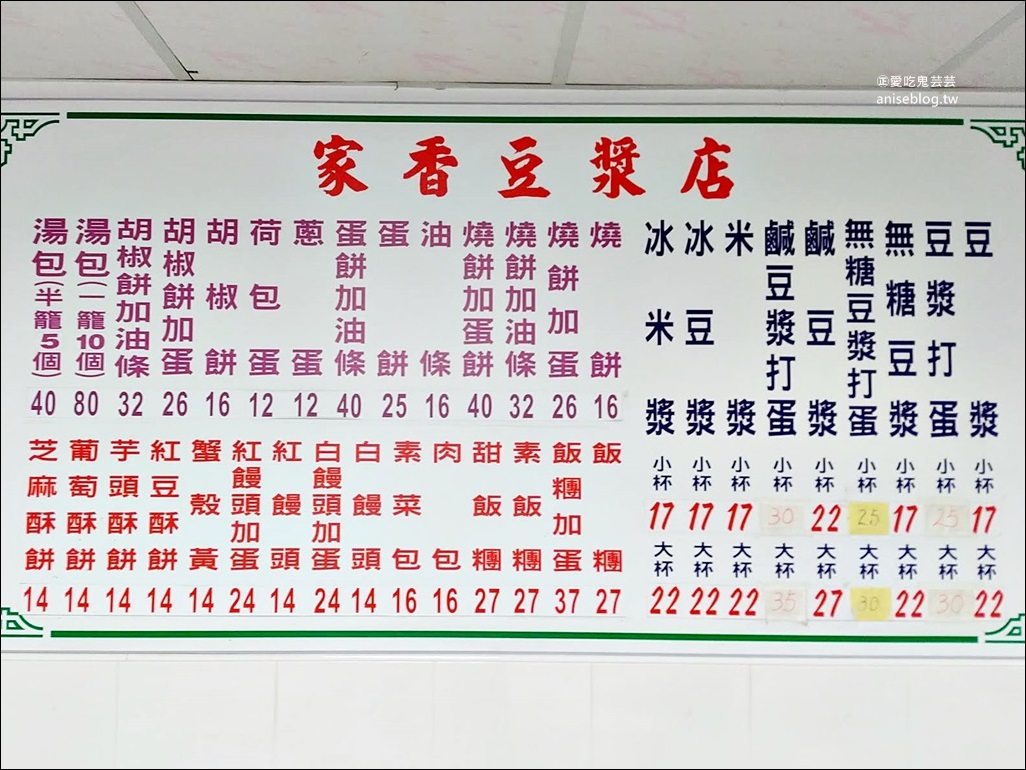 愛吃鬼芸芸
aniseblog.tw
家香豆漿店
豆漿 小杯 17 大杯 22
豆漿打蛋 小杯 25 大杯 30
無糖豆漿 小杯 17 大杯 22
無糖豆漿打蛋 小杯 25 大杯 30
鹹豆漿 小杯 22 大杯 27
鹹豆漿打蛋 小杯 30 大杯 35
米漿 小杯 17 大杯 22
冰豆漿 小杯 17 大杯 22
冰米漿 小杯 17 大杯 22
燒餅 16
燒餅加蛋 26
燒餅加油條 32
燒餅加蛋餅 40
油條 16
蛋餅 25
蛋餅加油條 40
蔥蛋 12
荷包蛋 12
胡椒餅 16
胡椒餅加蛋 26
胡椒餅加油條 32
湯包(一籠10個) 80
湯包(半籠5個) 40
飯糰 27
飯糰加蛋 37
素飯糰 27
甜飯糰 27
肉包 16
素菜包 16
白饅頭 14
白饅頭加蛋 24
紅饅頭 14
紅饅頭加蛋 24
蟹殼黃 14
紅豆酥餅 14
芋頭酥餅 14
葡萄酥餅 14
芝麻酥餅 14